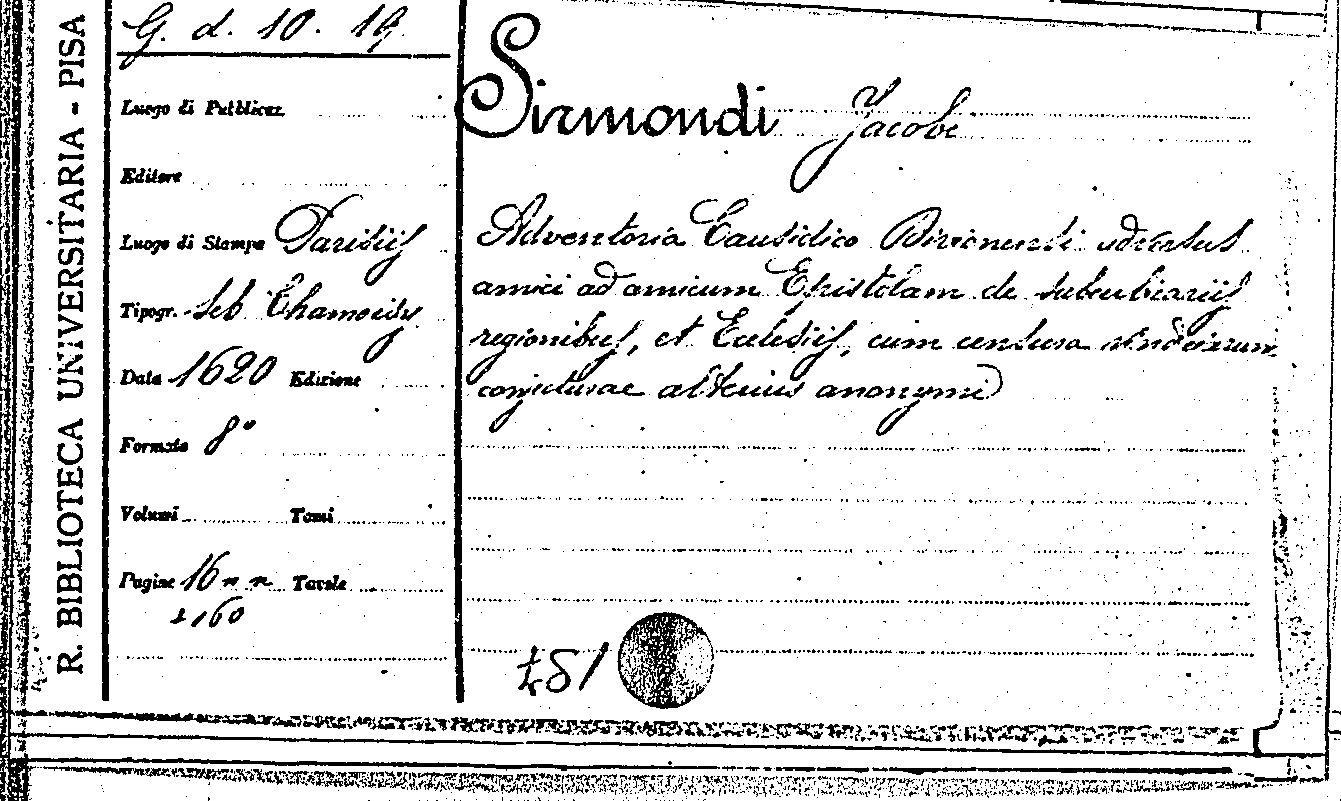 R. BIBLIOTECA UNIVERSITARIA - PISA
G. d. 10. 19
Luogo di Pubblicaz.
Editore
Luogo di Stampa Parisiis
Tipogr. Seb Chamoisy
Data 1620 Edizione
Formato 8°
Volumi Tomi
Pagine 16 n n Tavole
+160
Sirmondi Jacobi
Adventoria Causidico Divionensi adversus
amici ad amicum Epistolam de suburbicariis
regionibus, et Eclesiis, cum censura vindiciarum
conjecturae alterius anonymi